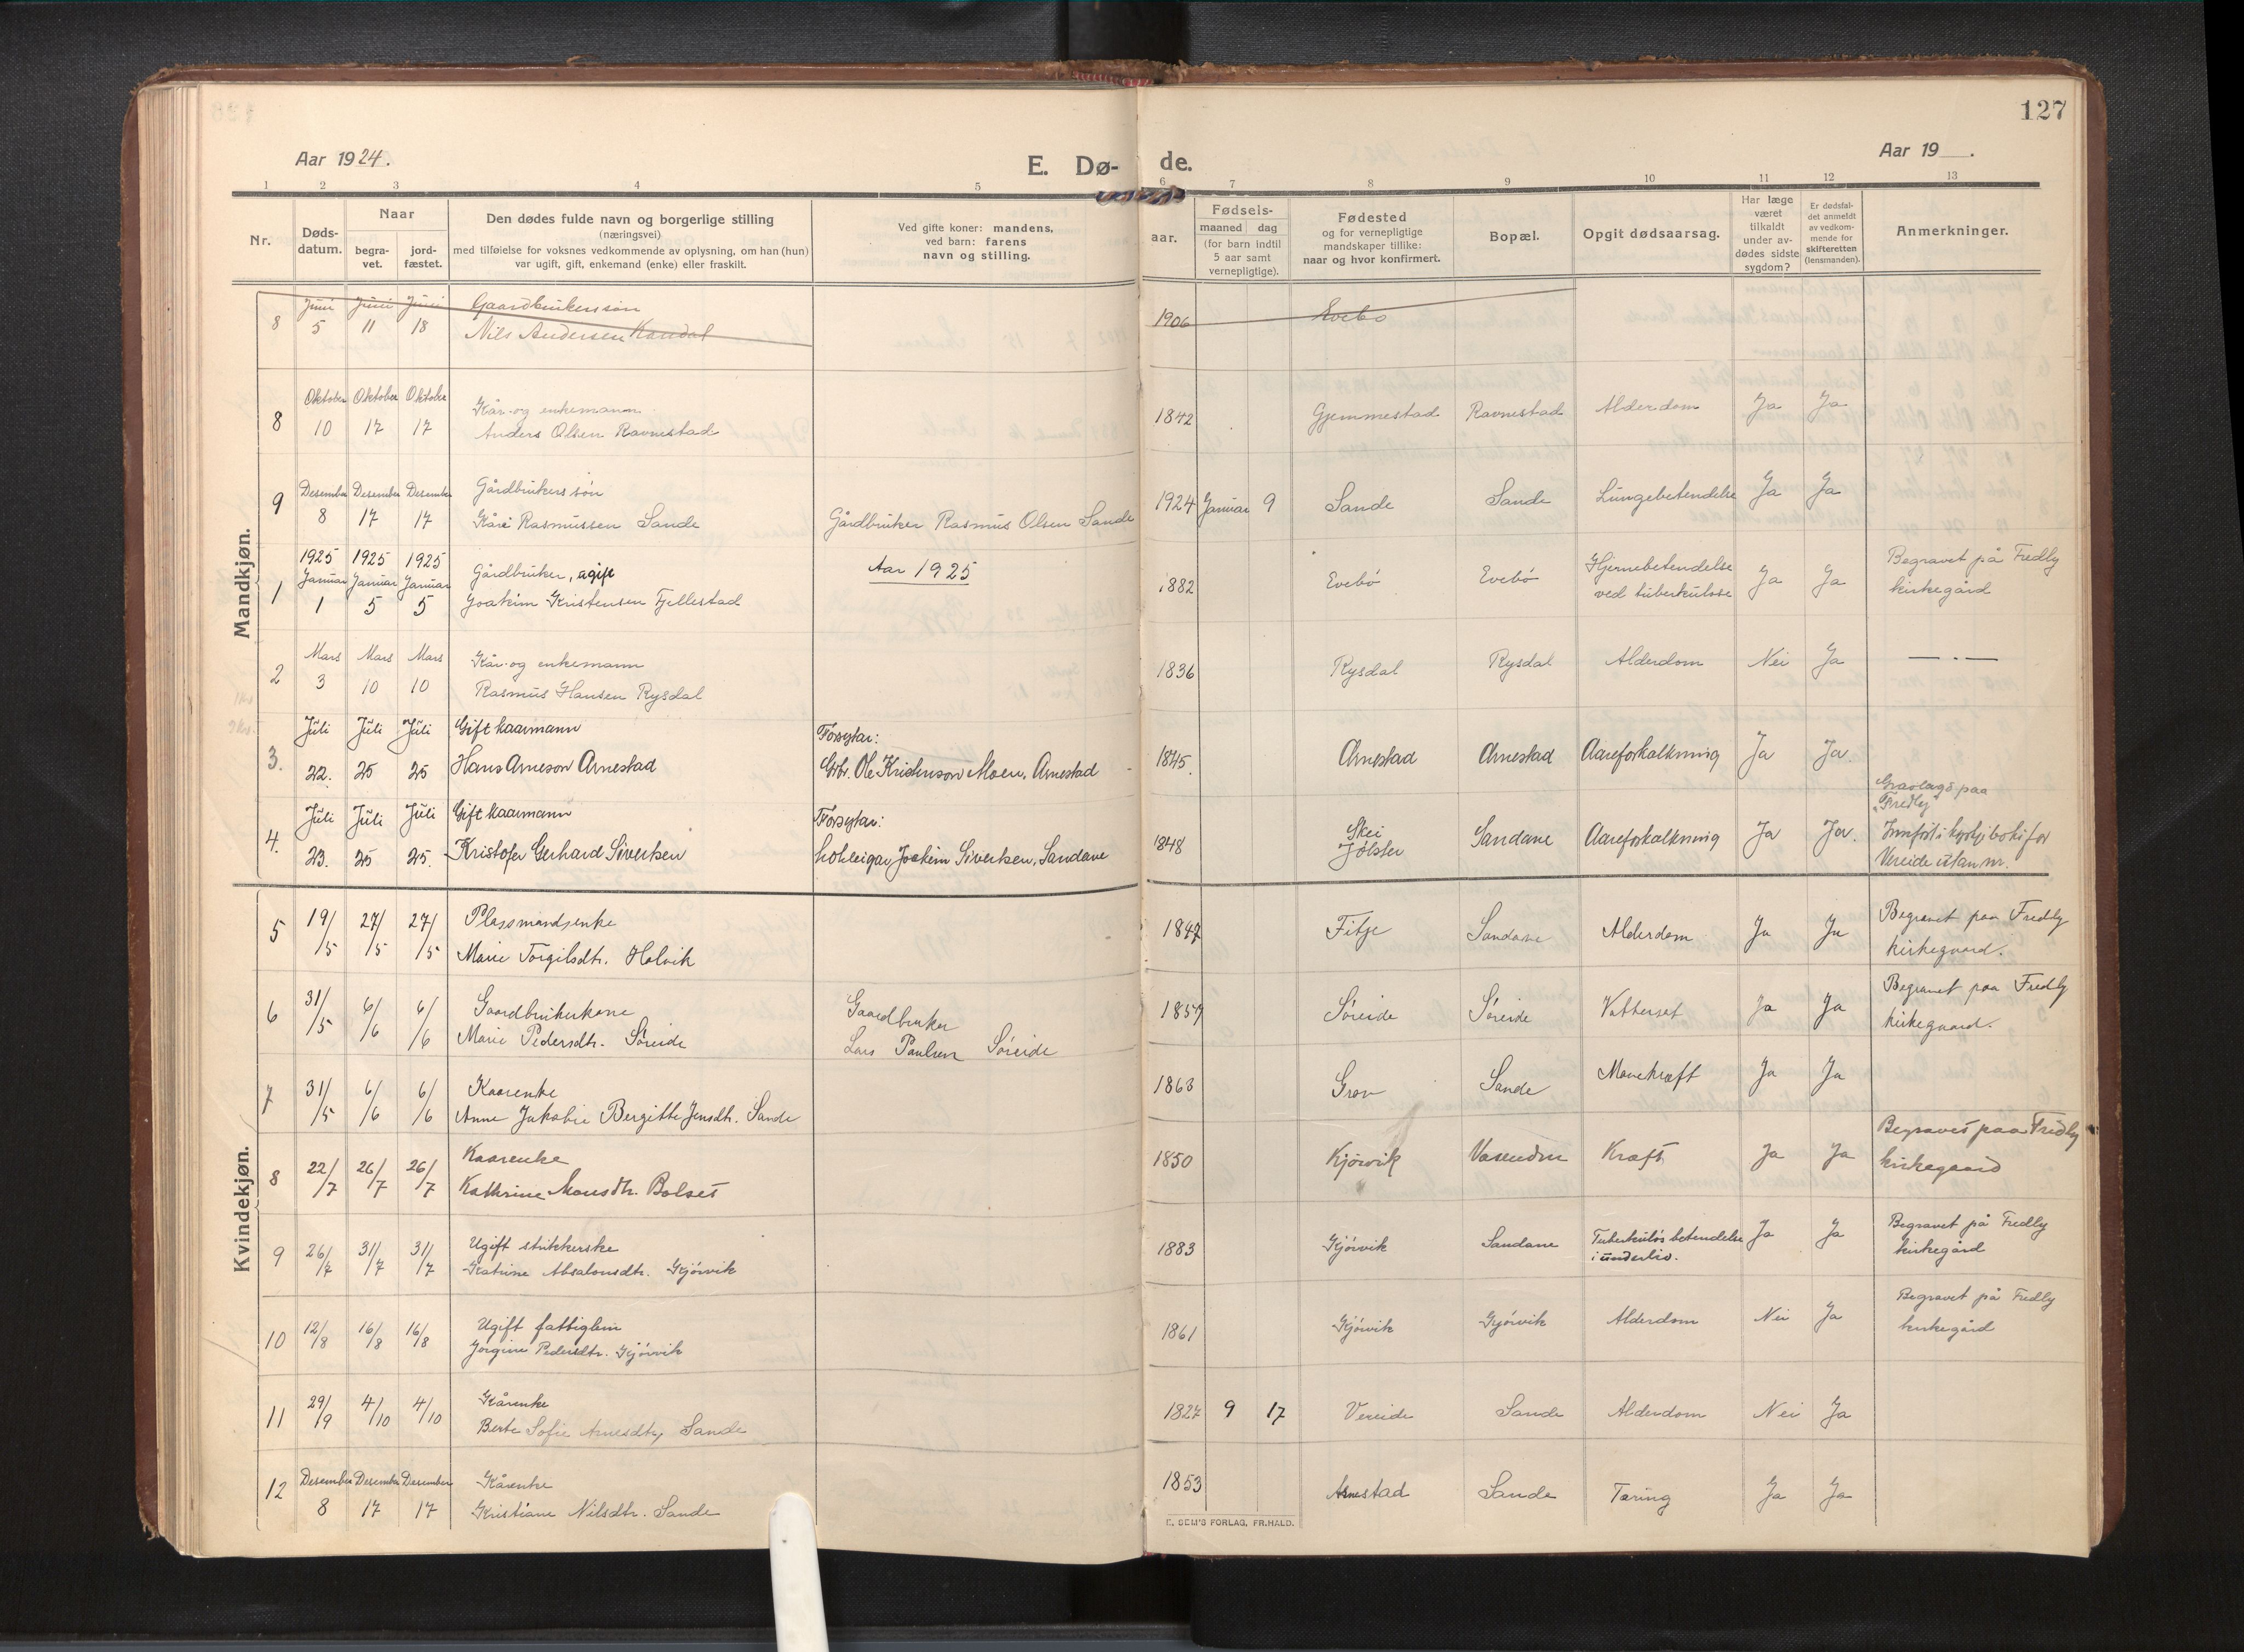 127
Aar 1924.
E. Dø- de.
Aar 19 .
1 2 3 4 5 6 7 8 9 10 11 12 13
Nr.
Døds-
datum.
Naar
begra-
vet.
jord-
fæstet.
Den dødes fulde navn og borgerlige stilling
(næringsvei)
med tilføielse for voksnes vedkommende av oplysning, om han (hun)
var ugift, gift, enkemand (enke) eller fraskilt.
Ved gifte koner: mandens,
ved barn: farens
navn og stilling.
aar.
Fødsels-
maaned dag
(for barn indtil
5 aar samt
vernepligtige).
Fødested
og for vernepligtige
mandskaper tillike:
naar og hvor konfirmert.
Bopæl.
Opgit dødsaarsag.
Har læge
været
tilkaldt
under av-
dødes sidste
sygdom?
Er dødsfal-
det anmeldt
av vedkom-
mende for
skifteretten
(lensmanden).
Anmerkninger.
Mandkjøn.
Juni Juni Juni Gaardbrukerssøn
8 5 11 18 Nils Andersen Kandal 1906 Evebø
Oktober Oktober Oktober Kår- og enkemann
8 10 17 17 Anders Olsen Ravnestad 1842 Gjemmestad Ravnestad Alderdom Ja Ja
Desember Desember Desember Gårdbrukers søn
9 8 17 17 Kåre Rasmussen Sande Gårdbruker Rasmus Olsen Sande 1924 Januar 9 Sande Sande Lungebetendelse Ja Ja
1925 1925 1925 Aar 1925
Januar Januar Januar Gårdbruker, ugift Hjernebetendelse Begravet på Fredly
1 1 5 5 Joakim Kristensen Fjellestad 1882 Evebø Evebø ved tuberkulose Ja Ja kirkegård
Mars Mars Mars Kår- og enkemann
2 3 10 10 Rasmus Hansen Rysdal 1836 Rysdal Rysdal Alderdom Nei Ja — . —
Juli Juli Juli Gift kaarmann Forsytar:
3. 22. 25 25 Hans Arneson Arnestad Gbr. Ole Kristenson Moen, Arnestad 1845. Arnestad Arnestad Aareforkalkning Ja Ja.
Juli Juli Juli Gift kaarmann Forsytar: Skei Gravlagd paa
"Fredly"
4. 23. 25 25. Kristofer Gerhard Sivertsen Joakim Sivertsen, Sandane 1848 Jølster Sandane Aareforkalkning Ja Ja. Innført i kyrkjeboki for
Vereide utan nr.
Kvindekjøn.
5 19/5 27/5 27/5 Plassmandsenke
Marie Torgilsdtr. Holvik 1847 Fitje Sandane Alderdom Ja Ja Begravet paa Fredly
kirkegaard.
6 31/5 6/6 6/6 Gaardbrukerkone Gaardbruker
Marie Pedersdtr. Søreide Lars Paulsen Søreide 1857 Søreide Søreide Vattersot Ja Ja Begravet paa Fredly
kirkegaard.
7 31/5 6/6 6/6 Kaarenke
Anne Jakobie Bergitte Jensdtr. Sande 1863 Grov Sande Mavekræft Ja Ja
8 22/7 26/7 26/7 Kaarenke
Kathrine Monsdtr. Bolset 1850 Kjørvik Vasenden Kræft Ja Ja Begravet paa Fredly
kirkegaard
9 26/7 31/7 31/7 Ugift strikkerske
Katrine Absalonsdtr. Gjørvik 1883 Gjørvik Sandane Tuberkuløs betendelse
i underliv. Ja Ja Begravet på Fredly
kirkegård
10 12/8 16/8 16/8 Ugift fattiglem
Jørgine Pedersdtr. Gjørvik 1861 Gjørvik Gjørvik Alderdom Nei Ja Begravet på Fredly
kirkegård
11 29/9 4/10 4/10 Kårenke
Berte Sofie Arnesdtr, Sande 1827 9 17 Vereide Sande Alderdom Nei Ja
Desember Desember Desember Kårenke
12 8 17 17 Kristiane Nilsdtr. Sande 1853 Arnestad Sande Tæring Ja Ja
E. SEM'S FORLAG, FR.HALD.